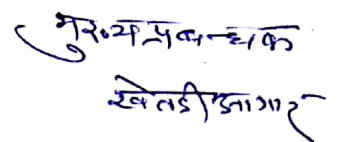 मुख्य प्रबन्धक
खेतडी आगार